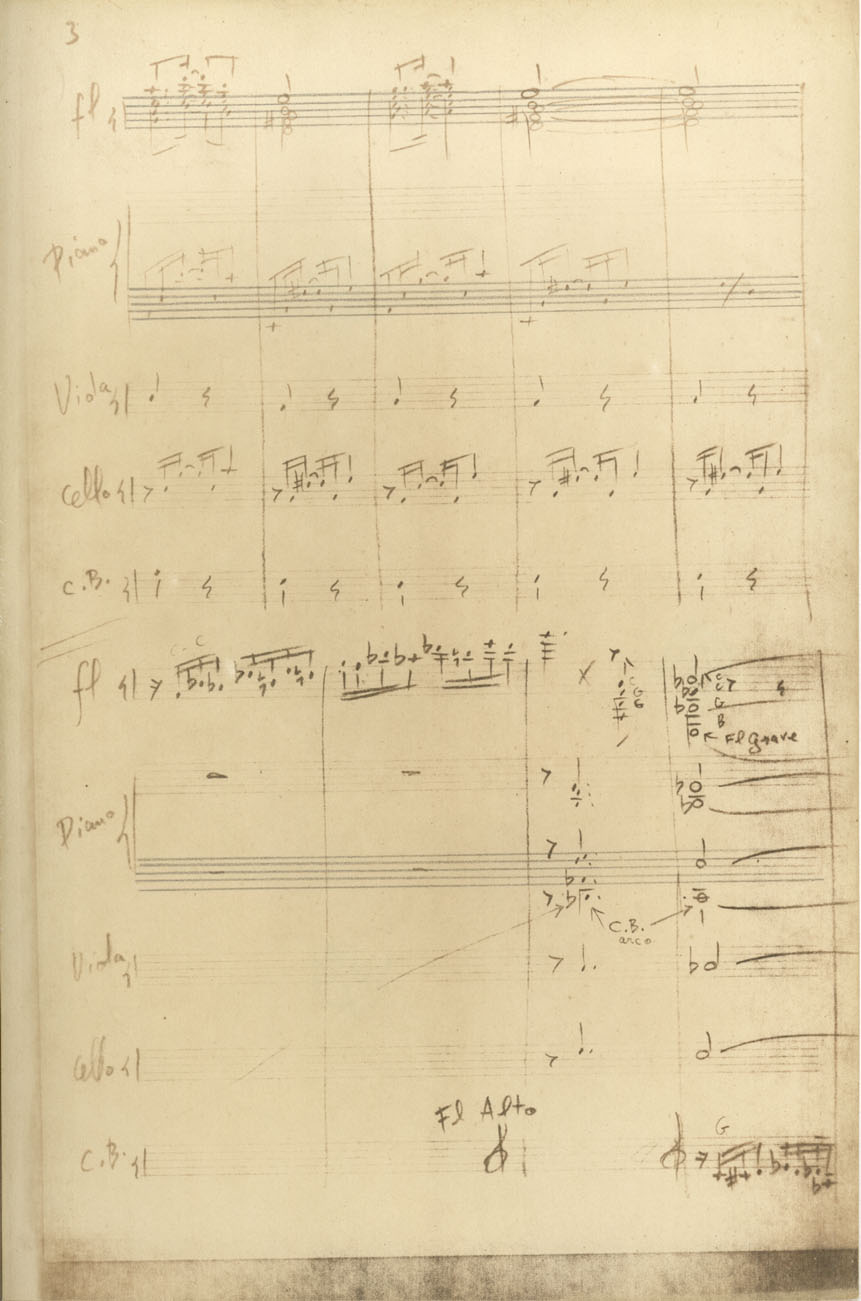 3
fl
Piano
Viola
Cello
C.B.
C. C
fl
C
G
G
C
C
G
B
Fl grave
Piano
C.B.
arco
Viola
Cello
Fl Alto
G
C.B.